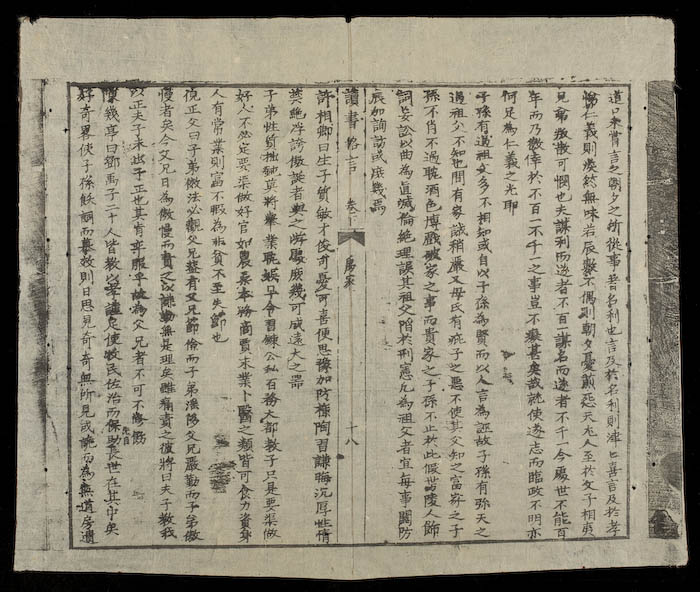 道口未嘗言之朝夕之所從事者名利也言及於名利則津〻喜言及於孝
悌仁義則淡然無味若辰數不偶則朝夕憂煎怨天尤人至於父子相夷
兄弟可憫也夫謀利而遂者不百一謀名而遂者不千一今處世不能百
年而乃徼倖於不百一不千一之事豈不癡甚矣哉就使遂志而臨政不明亦
何足為仁義之光耶
子孫有過祖父多不相知或自以子孫為賢而以人言為誣故子孫有弥天之
過祖父不知也間有家誡稍嚴又母氏有庇子之惡不使其父知之富家之子
孫不肖不過耽酒色博戲破家之事而貴家之子孫不止於此假勢陵人飾
詞妄訟以曲為直滅倫絶理誤其祖父陷於刑憲凡為祖父者宜每事關防
辰加詢訪或庶幾焉
讀書格言 卷 十八
許相卿曰生子質敏才俊可憂可喜便思豫加防檢陶習謙晦沉厚性情
其絶浮誇傲誕者與之游處庶幾可成遠大之器
子弟性質拙鈍莫將舉業耽誤早令習練公私百務大都教子只是要渠做
好人不必定要渠做好官如農桑本務商賈末業卜醫之類皆可食力資身
人有常業則富不暇為非貧不至失節也
倪正父曰子弟做法必觀父兄蓋有父兄節儉而子弟淫陽父兄嚴勤而子弟傲
慢者矣今父兄日為傲慢而責之以謙勤無是理矣雖痛責之彼將曰夫子教我
以正夫子未出于正也其肯率服乎故為父兄者不可不修飭
陳幾亭曰鄧禹子二十人皆教以孝謹足使牧民佐治而保助長世在其中矣
好奇畧使子孫飫詞而慕效則日思見奇奇無所見或詭而為無道房遺